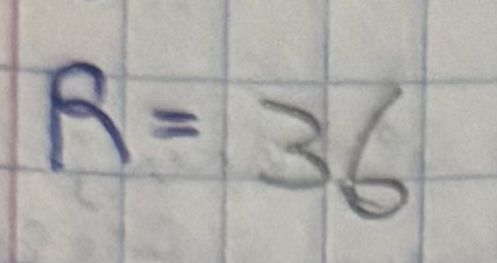 R = 36